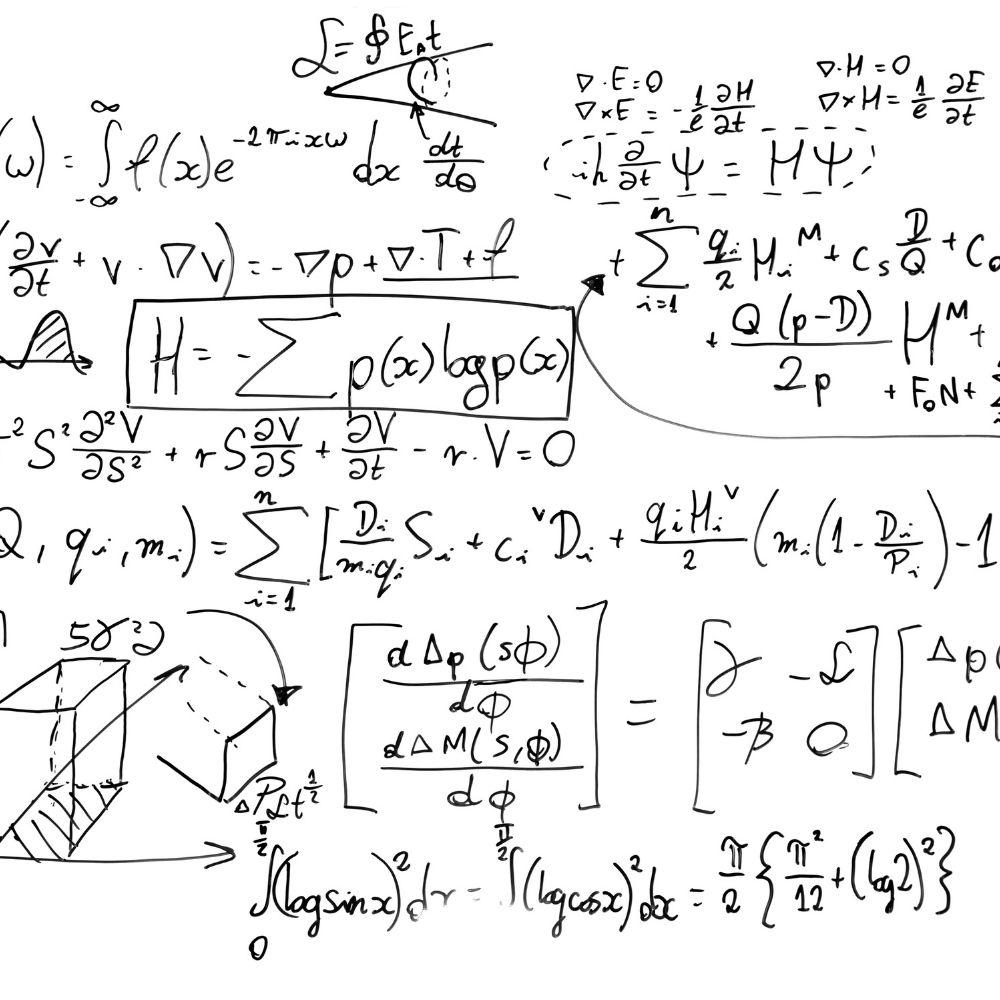 ℒ = ∮ E₀t
∇·E=0
∇×E = -1/e ∂H/∂t
∇·H=0
∇×H = 1/e ∂E/∂t
ω) = ∫_{-∞}^{∞} f(x)e^{-2πixω} dx dt/dθ
ih ∂/∂t Ψ = HΨ
(∂v/∂t + v · ∇v) = -∇p + ∇·T + f
+ ∑_{i=1}^{n} q_i/2 H_i^M + c_s D/Q + C
+ Q(p-D)/2p H^M +
+ F₀N +
H = -∑ p(x) log p(x)
² S² ∂²V/∂S² + rS ∂V/∂S + ∂V/∂t - r.V = 0
Q, q_i, m_i) = ∑_{i=1}^{n} [D_i/m_iq_i S_i + c_i^v D_i + q_iH_i^v/2 (m_i(1 - D_i/P_i) - 1
[dΔp(sϕ)/dϕ
dΔM(s,ϕ)/dϕ] = [γ -ℒ
-β 0] [Δp(
ΔM
ΔPℒt^{1/2}
∫_0^{π/2} (log sin x)² dx = ∫^{π/2} (log cos x)² dx = π/2 {π²/12 + (log 2)²}